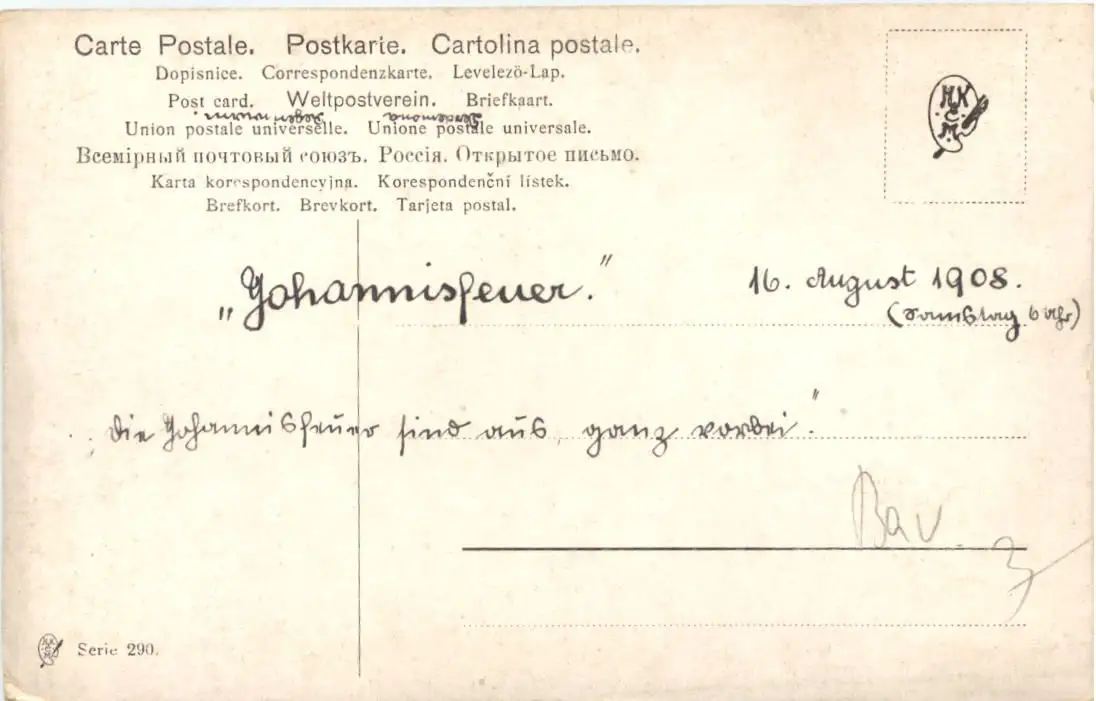 Carte Postale. Postkarte. Cartolina postale.
Dopisnice. Correspondenzkarte. Levelezö-Lap.
Post card. Weltpostverein. Briefkaart.
Union postale universelle. Unione postale universale.
Всемірный почтовый союзъ. Россія. Открытое письмо.
Karta korespondencyjna. Korespondenční lístek.
Brefkort. Brevkort. Tarjeta postal.
M.K.
C.
M.
„Johannisfeuer."
16. August 1908.
(Samstag 6 Uhr)
„Die Johannisfeuer sind aus, ganz vorbei."
Bav
3
Serie 290.